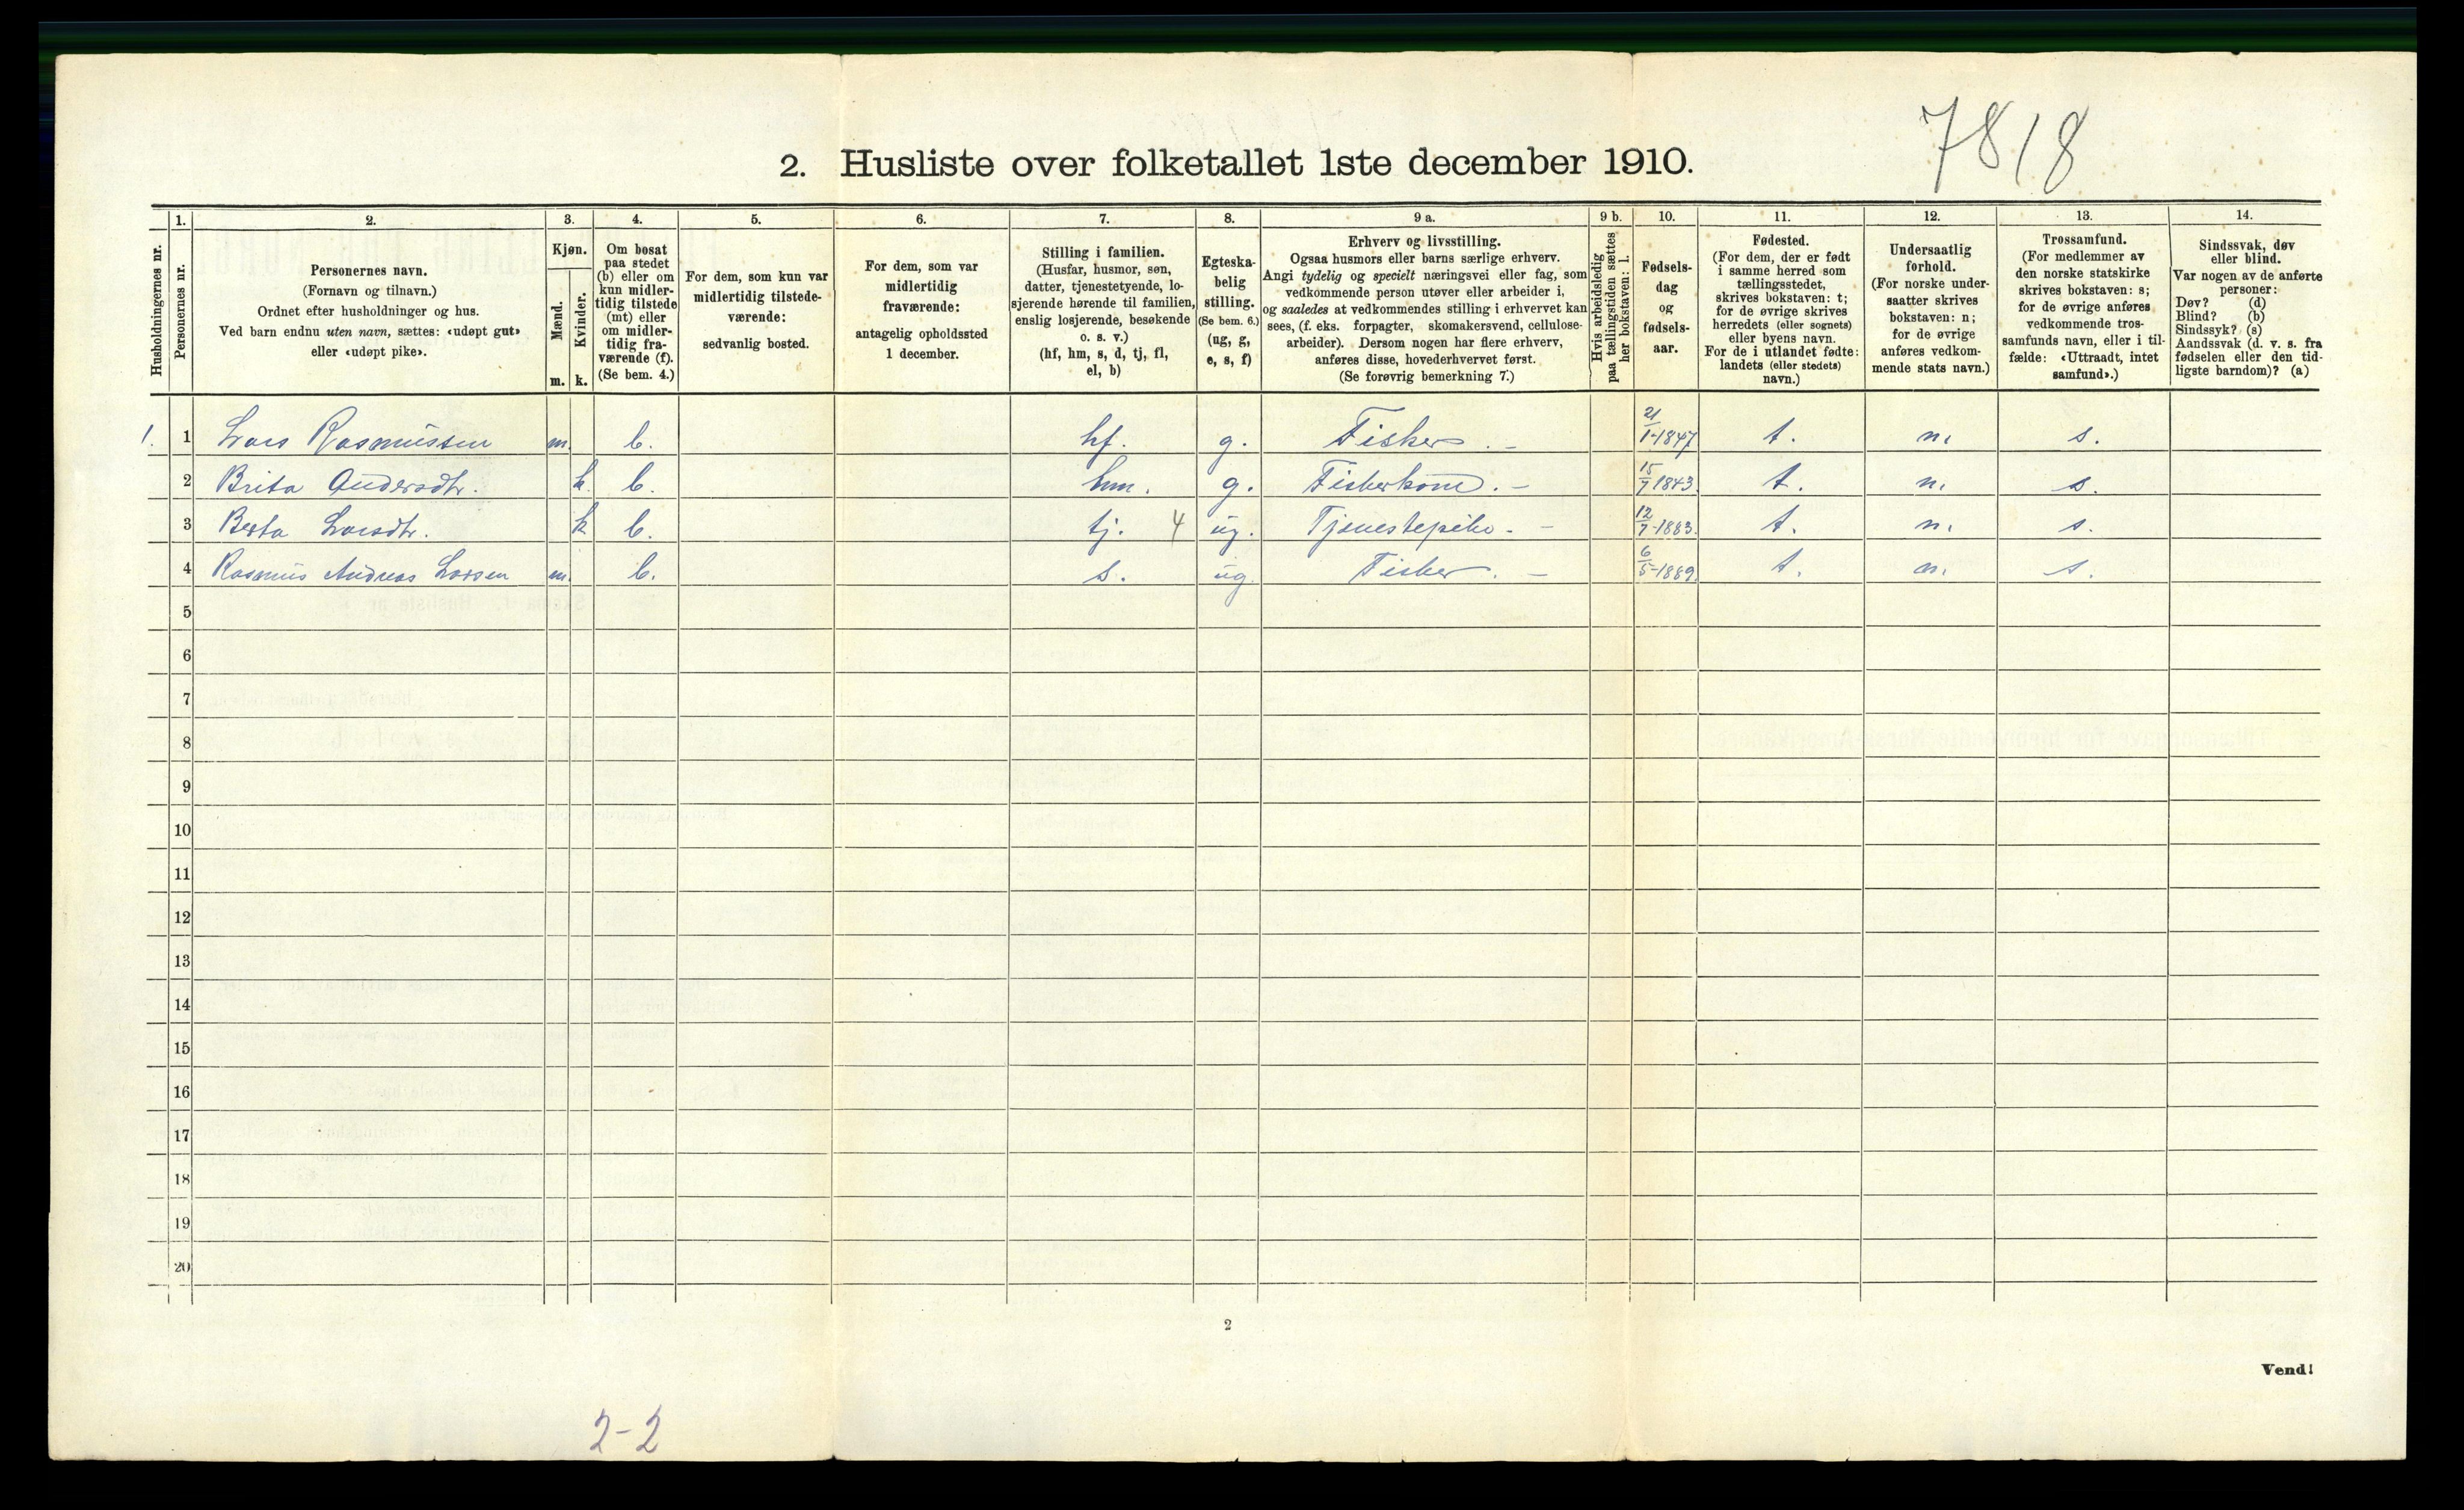 7818
2. Husliste over folketallet 1ste december 1910.
Husholdningernes nr.
1.
Personernes nr.
2.
Personernes navn.
(Fornavn og tilnavn.)
Ordnet efter husholdninger og hus.
Ved barn endnu uten navn, sættes: «udøpt gut»
eller «udøpt pike».
3.
Kjøn.
Mænd.
Kvinder.
m. k.
4.
Om bosat
paa stedet
(b) eller om
kun midler-
tidig tilstede
(mt) eller
om midler-
tidig fra-
værende (f).
(Se bem. 4.)
5.
For dem, som kun var
midlertidig tilstede-
værende:
sedvanlig bosted.
6.
For dem, som var
midlertidig
fraværende:
antagelig opholdssted
1 december.
7.
Stilling i familien.
(Husfar, husmor, søn,
datter, tjenestetyende, lo-
sjerende hørende til familien,
enslig losjerende, besøkende
o. s. v.)
(hf, hm, s, d, tj, fl,
el, b)
8.
Egteska-
belig
stilling.
(Se bem. 6.)
(ug, g,
e, s, f)
9 a.
Erhverv og livsstilling.
Ogsaa husmors eller barns særlige erhverv.
Angi tydelig og specielt næringsvei eller fag, som
vedkommende person utøver eller arbeider i,
og saaledes at vedkommendes stilling i erhvervet kan
sees, (f. eks. forpagter, skomakersvend, cellulose-
arbeider). Dersom nogen har flere erhverv,
anføres disse, hovederhvervet først.
(Se forøvrig bemerkning 7.)
9 b.
Hvis arbeidsledig
paa tællingstiden sættes
her bokstaven: l.
10.
Fødsels-
dag
og
fødsels-
aar.
11.
Fødested.
(For dem, der er født
i samme herred som
tællingsstedet,
skrives bokstaven: t;
for de øvrige skrives
herredets (eller sognets)
eller byens navn.
For de i utlandet fødte:
landets (eller stedets)
navn.)
12.
Undersaatlig
forhold.
(For norske under-
saatter skrives
bokstaven: n;
for de øvrige
anføres vedkom-
mende stats navn.)
13.
Trossamfund.
(For medlemmer av
den norske statskirke
skrives bokstaven: s;
for de øvrige anføres
vedkommende tros-
samfunds navn, eller i til-
fælde: «Uttraadt, intet
samfund».)
14.
Sindssvak, døv
eller blind.
Var nogen av de anførte
personer:
Døv? (d)
Blind? (b)
Sindssyk? (s)
Aandssvak (d. v. s. fra
fødselen eller den tid-
ligste barndom)? (a)
1. 1 Lars Rasmussen m. b. hf. g. Fisker. – 21/1-1847 t. n. s.
2 Brita Andersdtr. k. b. hm. g. Fiskerkone. – 15/7 1843. t. n. s.
3 Berta Larsdtr. k b. tj. 4 ug. Tjenestepike. – 12/7-1883. t. n. s.
4 Rasmus Andreas Larsen m. b. s. ug. Fisker. – 6/5-1889. t. n. s.
5
6
7
8
9
10
11
12
13
14
15
16
17
18
19
20
2
Vend!
2-2